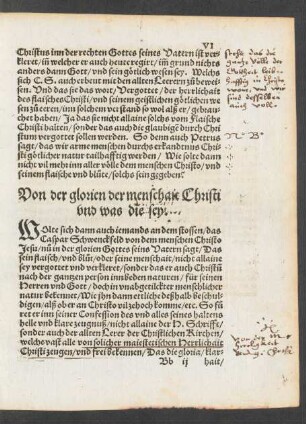 VI
Christus inn der rechten Gottes seines Vattern ist ver
kleret / inn welcher er auch heute regirt / im grund nichts
anders dann Gott / und sein götlich wesen sey. Welchs
sich C. S. auch erbeut mit den allten Leerern zu bewei-
sen. Und das sie das wort / Vergottet / der herrlichait
des flaisches Christi / und seinem geistlichen götlichen we
sen zu eeren / inn solchem verstand so wol als er / gebrau
chet haben / Ja das sie nicht allaine solchs vom Flaische
Christi halten / sonder das auch die glaubige durch Chri
stum vergottet sollen werden. So denn auch Petrus
sagt / das wir arme menschen durchs erkandtnus Chri
sti götlicher natur tailhafftig werden / Wie solte dann
nicht vil mehr inn aller völle dem menschen Christo / und
seinem flaisch und blüte / solchs sein gegeben?
Von der glorien der menschait Christi
und was die sey.
WOlte sich dann auch iemands an dem stossen / das
Caspar Schwenckfeld von dem menschen Christo
Jesu / nu in der glorien Gottes seins Vattern sagt / Das
sein flaisch und blüt / oder seine menschait / nicht allaine
sey vergottet und verkleret / sonder das er auch Christum
nach der gantzen person inn beden naturen / für seinen
Herren und Gott / doch in unabgetilckter menschlicher
natur bekenne / Wie ihn dann ertliche deshalb beschul-
digen / als ob er an Christo vil zhoch komme etc. So
ret er inn seiner Confession des und alles seines haltens
helle und klare zeugnuß / nicht allaine der H. Schrifft /
sonder auch der allten Lerer der Christlichen Kirchen /
welche vast alle von solicher maiestetischen Herrlichait
Christi zeugen / und frei bekennen / Das die gloria / klar-
Bb ij hait /
N B